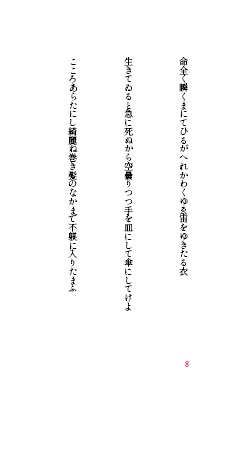 命全く瞬くまにてひるがへれかわくゆゑ宙をゆきたる衣
生きてゐると急に死ぬから空曇りつつ手を皿にして傘にしてけよ
こころあらたにし綺麗ね巻き髪のなかまで不躾に入りたまふ
8